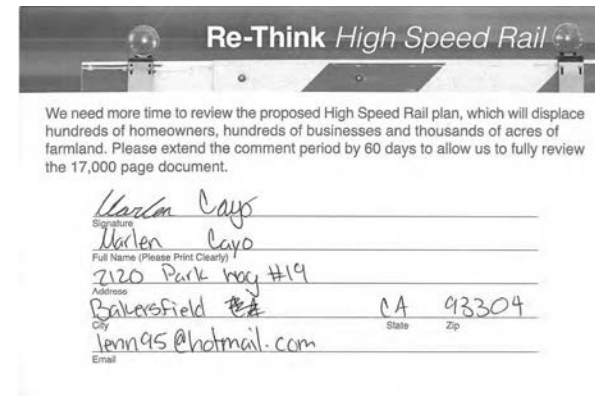 Re-Think High Speed Rail
We need more time to review the proposed High Speed Rail plan, which will displace
hundreds of homeowners, hundreds of businesses and thousands of acres of
farmland. Please extend the comment period by 60 days to allow us to fully review
the 17,000 page document.
Marlen Cayo
Signature
Marlen Cayo
Full Name (Please Print Clearly)
2120 Park way #19
Address
Bakersfield CA 93304
City State Zip
lenn95@hotmail.com
Email